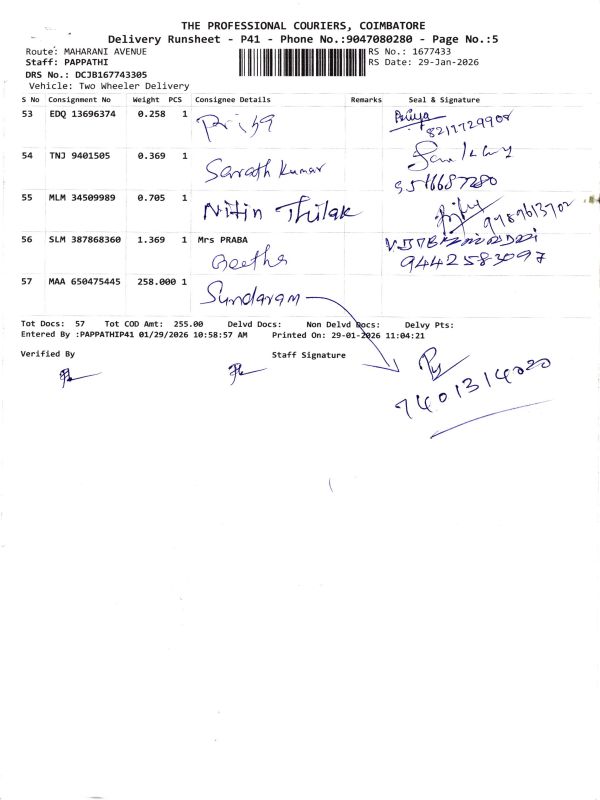 THE PROFESSIONAL COURIERS, COIMBATORE
Delivery Runsheet - P41 - Phone No.:9047080280 - Page No.:5
Route: MAHARANI AVENUE
RS No.: 1677433
Staff: PAPPATHI
RS Date: 29-Jan-2026
DRS No.: DCJB167743305
Vehicle: Two Wheeler Delivery
S No Consignment No Weight PCS Consignee Details Remarks Seal & Signature
53 EDQ 13696374 0.258 1 Priya Priya
8217729908
54 TNJ 9401505 0.369 1 Sarath Kumar
55 MLM 34509989 0.705 1 Nitin Thilak
56 SLM 387868360 1.369 1 Mrs PRABA
Geetha 9442583097
57 MAA 650475445 258.000 1 Sundaram
Tot Docs: 57 Tot COD Amt: 255.00 Delvd Docs: Non Delvd Docs: Delvy Pts:
Entered By :PAPPATHIP41 01/29/2026 10:58:57 AM Printed On: 29-01-2026 11:04:21
Verified By Staff Signature
7401314020